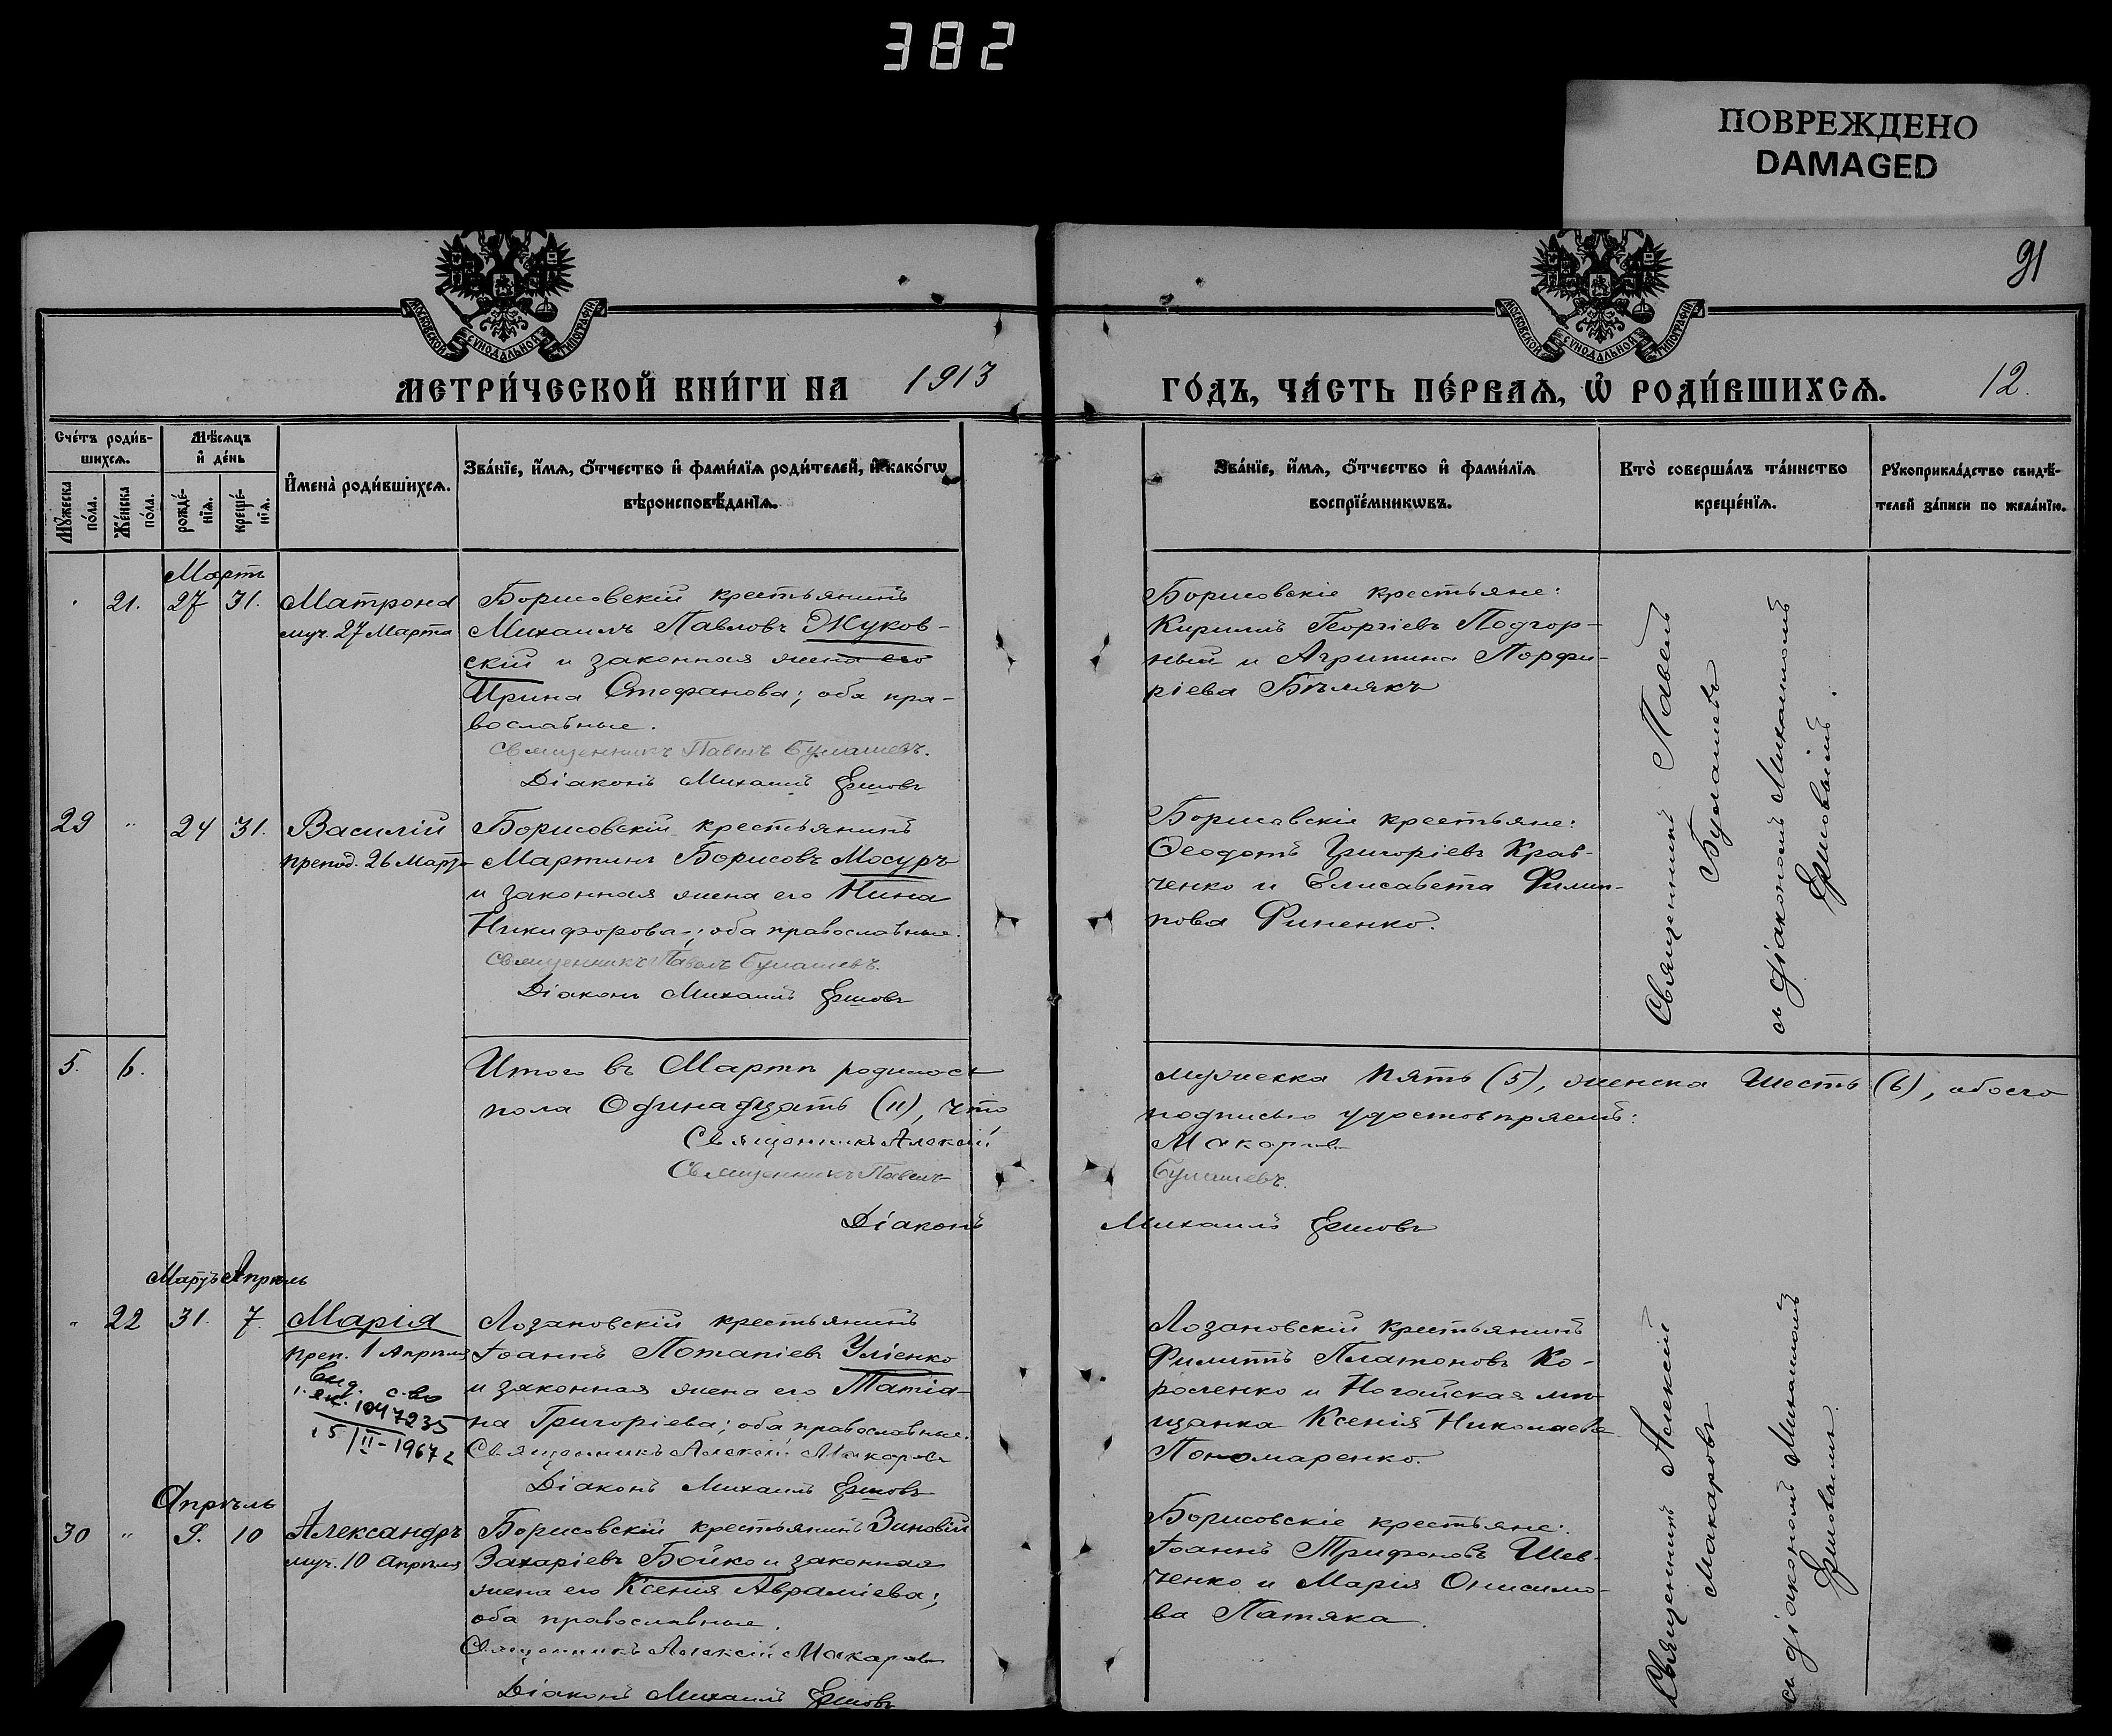 382
ПОВРЕЖДЕНО
DAMAGED
91
МОСКОВСКОЙ СУНОДАЛЬНОЙ ТИПОГРАФІИ
МОСКОВСКОЙ СУНОДАЛЬНОЙ ТИПОГРАФІИ
МЕТРИ́ЧЕСКОЙ КНИ́ГИ НА 1913
ГО́ДЪ, ЧА́СТЬ ПЕ́РВАѦ, Ѡ҆ РОДИ́ВШИХСѦ. 12.
Сче́тъ роди́в-
шихсѧ.
Мѣ́сѧцъ
и҆ де́нь
Мꙋ́жеска
по́ла.
Же́нска
по́ла.
рожде́-
нїѧ.
креще́-
нїѧ.
И҆мена̀ роди́вшихсѧ.
Зва́нїе, и҆́мѧ, ѻ҆́тчество и҆ фами́лїѧ роди́телей, и҆ како́гѡ
вѣроисповѣ́данїѧ.
Зва́нїе, и҆́мѧ, ѻ҆́тчество и҆ фами́лїѧ
воспрїе́мникѡвъ.
Кто̀ соверша́лъ та́инство
креще́нїѧ.
Рꙋкоприкла́дство свидѣ́-
телей за́писи по жела́нїю.
Мартъ
" 21. 27 31. Матрона
муч. 27 Марта
Борисовскій крестьянинъ
Михаилъ Павловъ Жуков-
скій и законная жена его
Ирина Стефанова; оба пра-
вославные.
Священникъ Павелъ Булашевъ.
Діаконъ Михаилъ Ершовъ
Борисовскіе крестьяне:
Кириллъ Георгіевъ Подгор-
ный и Агрипина Порфи-
ріева Бѣлякъ
Священникъ Павелъ
Булашевъ
съ діакономъ Михаиломъ
Ершовымъ.
29 " 24 31. Василій
препод. 26 Марта
Борисовскій крестьянинъ
Мартинъ Борисовъ Мосуръ
и законная жена его Нина
Никифорова; оба православные.
Священникъ Павелъ Булашевъ.
Діаконъ Михаилъ Ершовъ
Борисовскіе крестьяне:
Ѳеодотъ Григоріевъ Крав-
ченко и Елисавета Филип-
пова Финенко.
5. 6.
Итого въ Мартѣ родилось мужеска пять (5), женска шесть (6), обоего
пола Одинадцать (11), что подписью удостовѣряемъ:
Священникъ Алексій Макаровъ
Священникъ Павелъ Булашевъ.
Діаконъ Михаилъ Ершовъ
Мартъ Апрѣль
" 22 31. 7. Марія
преп. 1 Апрѣля
1047235
15/II-1967 г
Лозановскій крестьянинъ
Іоаннъ Потапіевъ Уліенко
и законная жена его Татіа-
на Григоріева; оба православные.
Священникъ Алексій Макаровъ
Діаконъ Михаилъ Ершовъ
Лозановскій крестьянинъ
Филиппъ Платоновъ Ко-
роленко и Ногайская мѣ-
щанка Ксенія Николаева
Пономаренко.
Священникъ Алексій
Макаровъ
съ діакономъ Михаиломъ
Ершовымъ.
Апрѣль
30 " 9. 10 Александръ
муч. 10 Апрѣля
Борисовскій крестьянинъ Зиновій
Захаріевъ Бойко и законная
жена его Ксенія Авраміева;
оба православные.
Священникъ Алексій Макаровъ
Діаконъ Михаилъ Ершовъ
Борисовскіе крестьяне:
Іоаннъ Трифоновъ Шев-
ченко и Марія Онисимо-
ва Патяка.